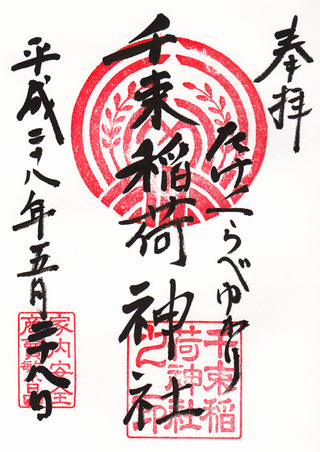 奉拝
たけくらべゆかり
千束稲荷神社
平成二十八年五月二十八日
千束稲
荷神社
之印
家内安全
繁昌